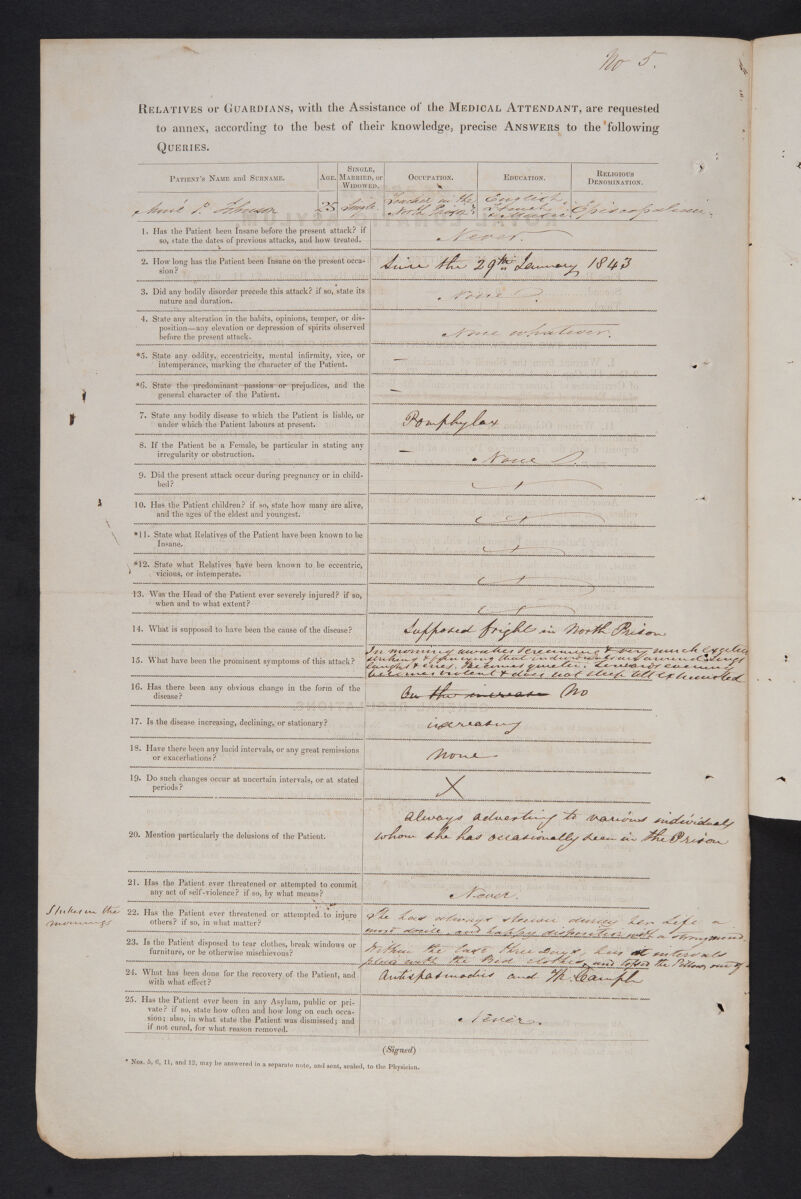 No 5.
RELATIVES or GUARDIANS, with the Assistance of the MEDICAL ATTENDANT, are requested
to annex, according to the best of their knowledge, precise ANSWERS to the following
QUERIES.
PATIENT'S NAME AND SURNAME. AGE. SINGLE, MARRIED, OR WIDOWED. OCCUPATION. EDUCATION. RELIGIOUS DENOMINATION.
Johnson 25 Single Teacher in the North Prison English, French & Music Episcopalian
1. Has the Patient been Insane before the present attack? if
so, state the dates of previous attacks, and how treated.
Never.
2. How long has the Patient been Insane on the present occa-
sion?
Since the 29th January 1843
3. Did any bodily disorder precede this attack? if so, state its
nature and duration.
None
4. State any alteration in the habits, opinions, temper, or dis-
position—any elevation or depression of spirits observed
before the present attack.
None whatever.
*5. State any oddity, eccentricity, mental infirmity, vice, or
intemperance, marking the character of the Patient.
—
*6. State the predominant passions or prejudices, and the
general character of the Patient.
—
7. State any bodily disease to which the Patient is liable, or
under which the Patient labours at present.
Pomphylax
8. If the Patient be a Female, be particular in stating any
irregularity or obstruction.
— None
9. Did the present attack occur during pregnancy or in child-
bed?
10. Has the Patient children? if so, state how many are alive,
and the ages of the eldest and youngest.
*11. State what Relatives of the Patient have been known to be
Insane.
*12. State what Relatives have been known to be eccentric,
vicious, or intemperate.
13. Was the Head of the Patient ever severely injured? if so,
when and to what extent?
14. What is supposed to have been the cause of the disease?
Supposed fright in North Prison
15. What have been the prominent symptoms of this attack?
In morning screaming & very much
striking & fancying that individuals
laughs & cries. Becomes quieter. towards evening
becomes violent & does not sleep till exhausted
16. Has there been any obvious change in the form of the
disease?
On the increase No
17. Is the disease increasing, declining, or stationary?
increasing
18. Have there been any lucid intervals, or any great remissions
or exacerbations?
None
19. Do such changes occur at uncertain intervals, or at stated
periods?
X
20. Mention particularly the delusions of the Patient.
Always adverting to various individuals
whom she has occasionally seen in the Prison
21. Has the Patient ever threatened or attempted to commit
any act of self-violence? if so, by what means?
Never.
Strikes in the
mornings
22. Has the Patient ever threatened or attempted to injure
others? if so, in what matter?
She has always shown during her Life a
most docile, and happy disposition with a strong mind.
23. Is the Patient disposed to tear clothes, break windows or
furniture, or be otherwise mischievous?
Within the last three Days, has at intervals
with the Bed clothes, and tossed the Pillows
24. What has been done for the recovery of the Patient, and
with what effect?
Antispasmodics and Camph
25. Has the Patient ever been in any Asylum, public or pri-
vate? if so, state how often and how long on each occa-
sion; also, in what state the Patient was dismissed; and
if not cured, for what reason removed.
Never.
(Signed)
* Nos. 5, 6, 11, and 12, may be answered in a separate note, and sent, sealed, to the Physician.